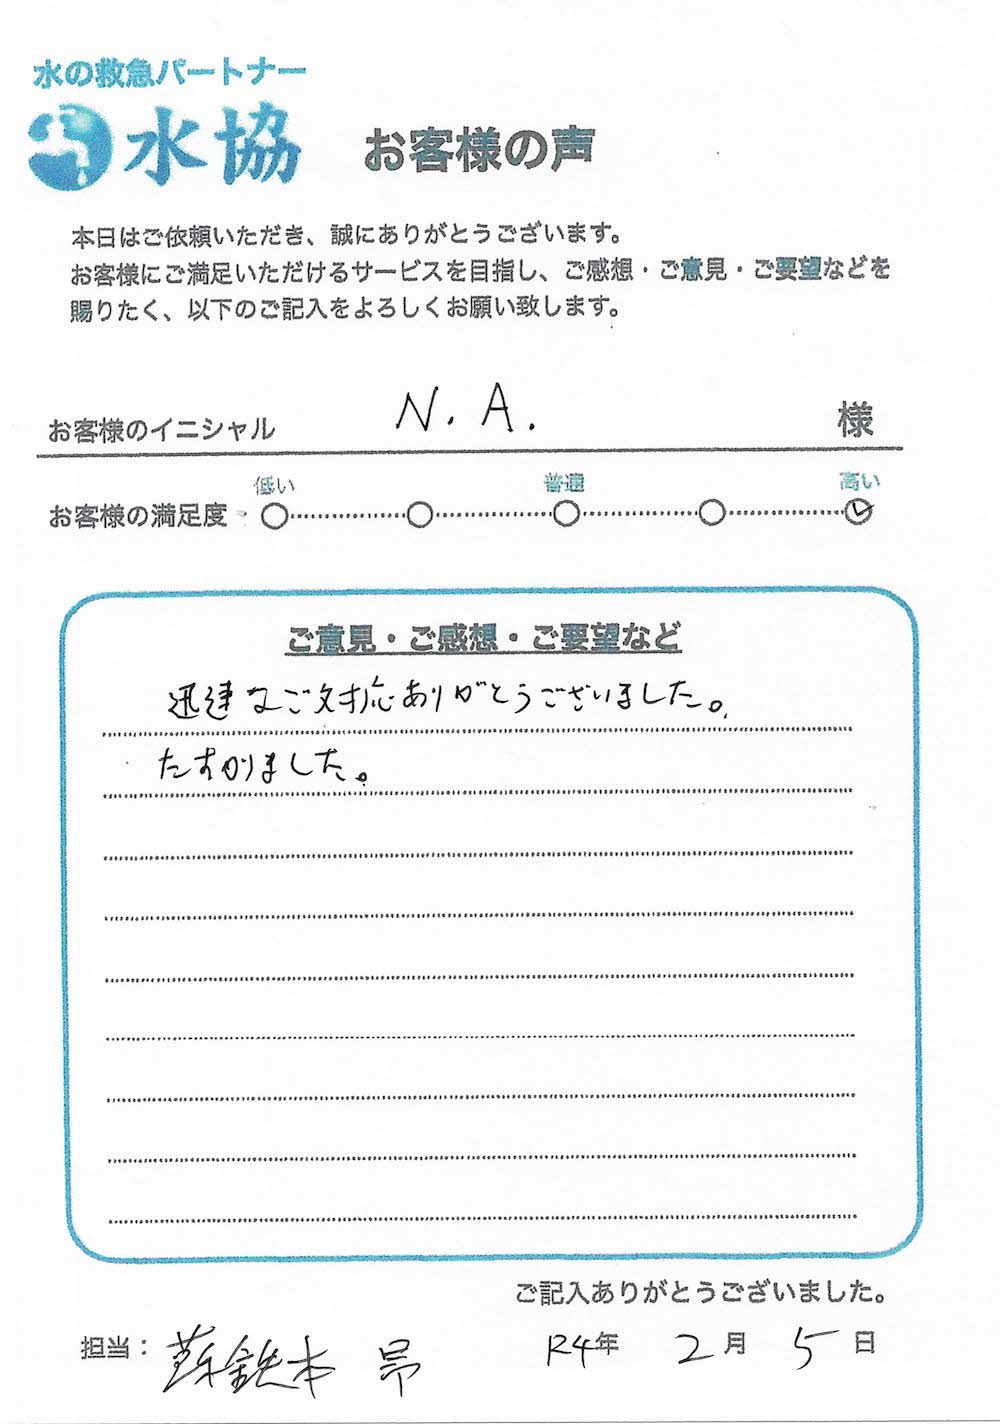 水の救急パートナー
水協 お客様の声
本日はご依頼いただき、誠にありがとうございます。
お客様にご満足いただけるサービスを目指し、ご感想・ご意見・ご要望などを
賜りたく、以下のご記入をよろしくお願い致します。
お客様のイニシャル N. A. 様
低い 普通 高い
お客様の満足度
ご意見・ご感想・ご要望など
迅速なご対応ありがとうございました。
たすかりました。
ご記入ありがとうございました。
担当: 蘇鉄本 昂 R4年 2月 5日